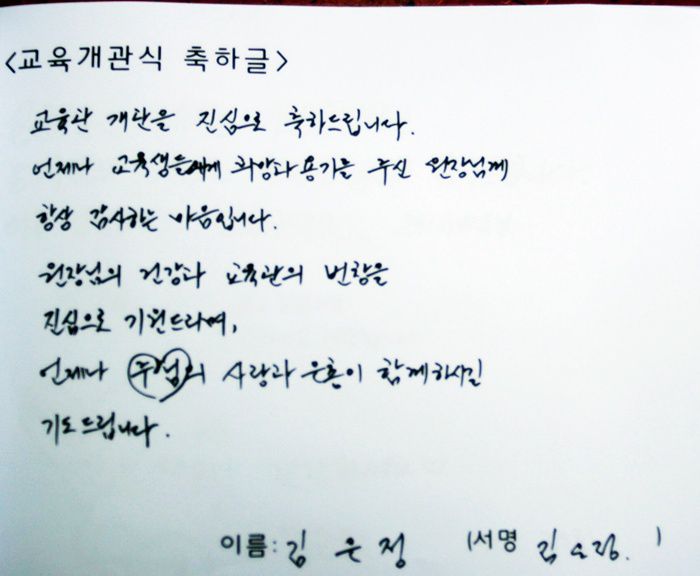 <교육개관식 축하글>
교육관 개관을 진심으로 축하드립니다.
언제나 교육생들에게 희망과 용기를 주신 원장님께
항상 감사하는 마음입니다.
원장님의 건강과 교육관의 번창을
진심으로 기원드리며,
언제나 주님의 사랑과 은총이 함께하시길
기도드립니다.
이름: 김은정 (서명 김 )